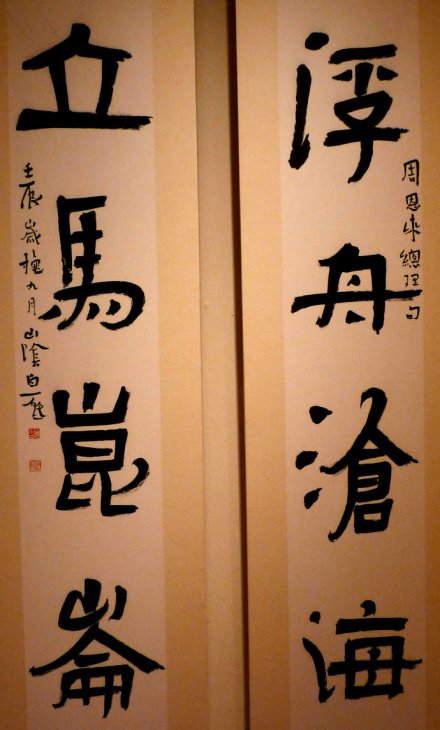 浮舟滄海
周恩來總理句
立馬崑崙
壬辰歲穐九月山陰白雄